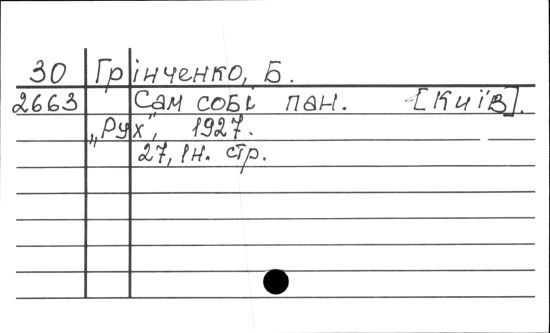 30 Грінченко, Б.
2663 Сам собі пан. [Київ].
„Рух", 1927.
27, 1 н. стр.